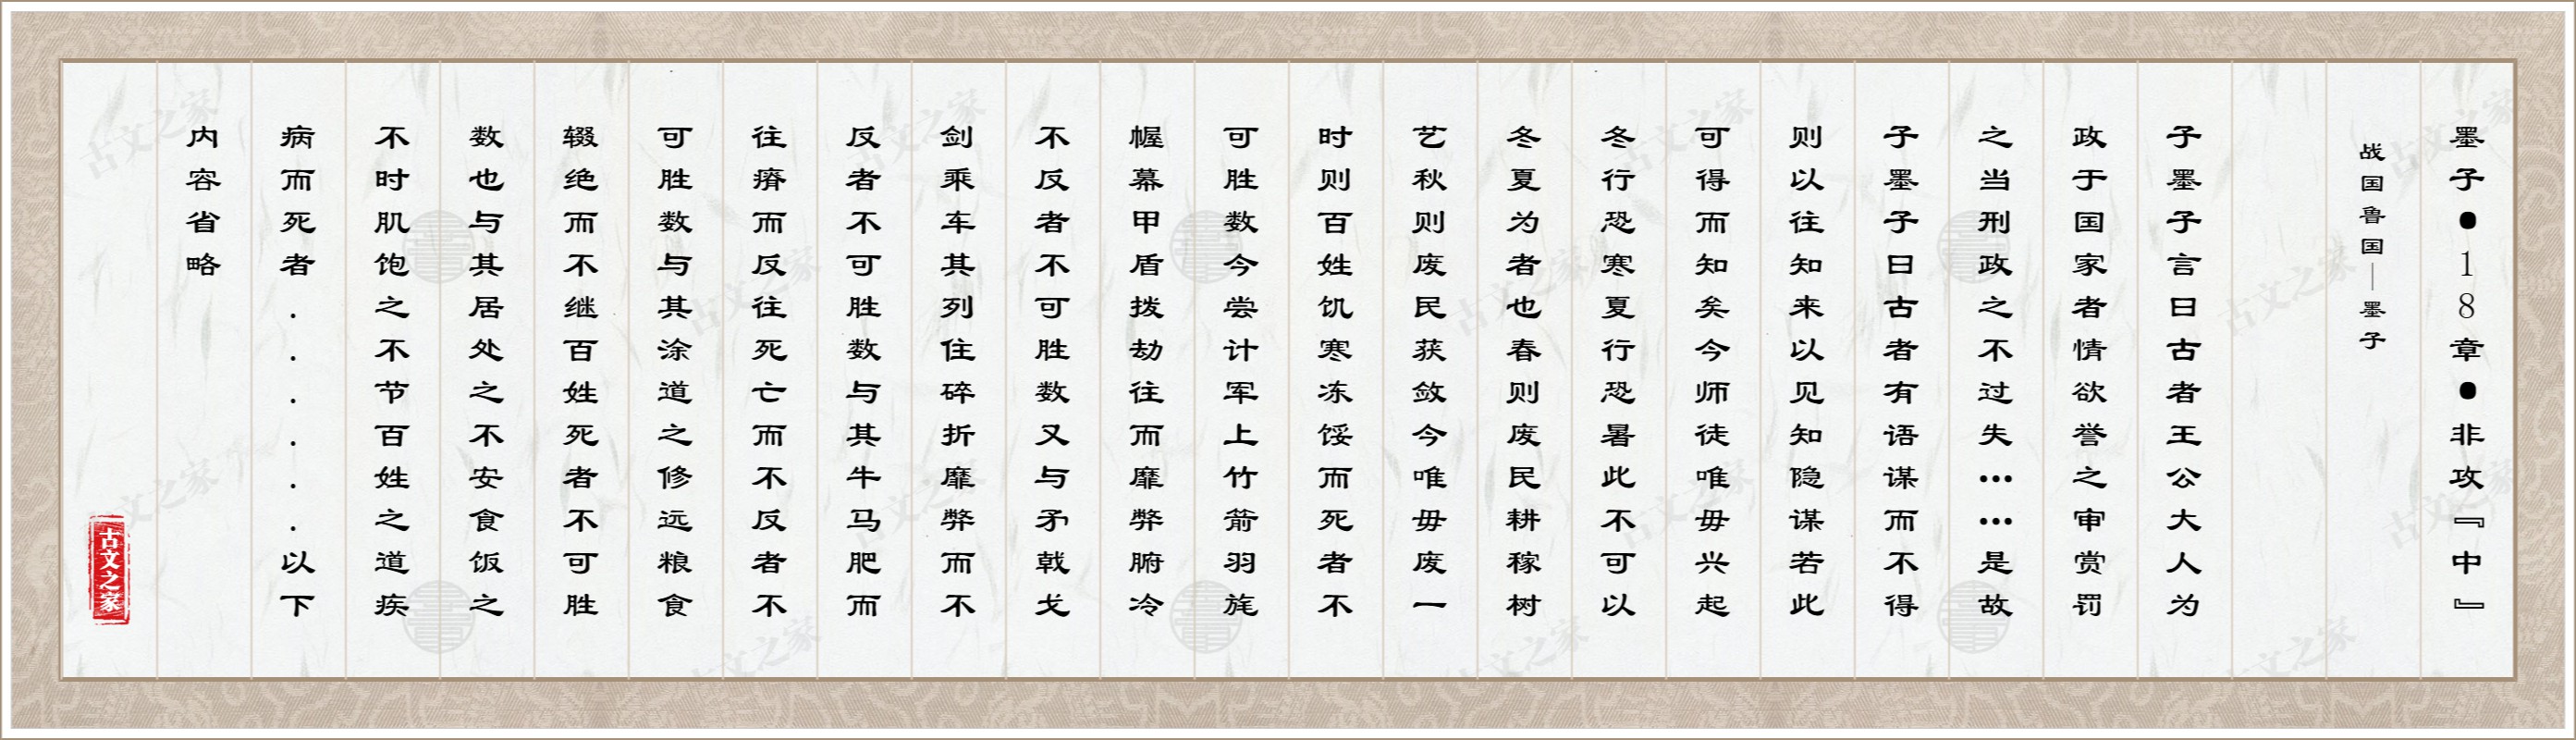 墨子●18章●非攻『中』
战国鲁国—墨子
子墨子言曰古者王公大人为
政于国家者情欲誉之审赏罚
之当刑政之不过失……是故
子墨子曰古者有语谋而不得
则以往知来以见知隐谋若此
可得而知矣今师徒唯毋兴起
冬行恐寒夏行恐暑此不可以
冬夏为者也春则废民耕稼树
艺秋则废民获敛今唯毋废一
时则百姓饥寒冻馁而死者不
可胜数今尝计军上竹箭羽旄
幄幕甲盾拨劫往而靡弊腑冷
不反者不可胜数又与矛戟戈
剑乘车其列住碎折靡弊而不
反者不可胜数与其牛马肥而
往瘠而反往死亡而不反者不
可胜数与其涂道之修远粮食
辍绝而不继百姓死者不可胜
数也与其居处之不安食饭之
不时肌饱之不节百姓之道疾
病而死者......以下
内容省略
古文之家